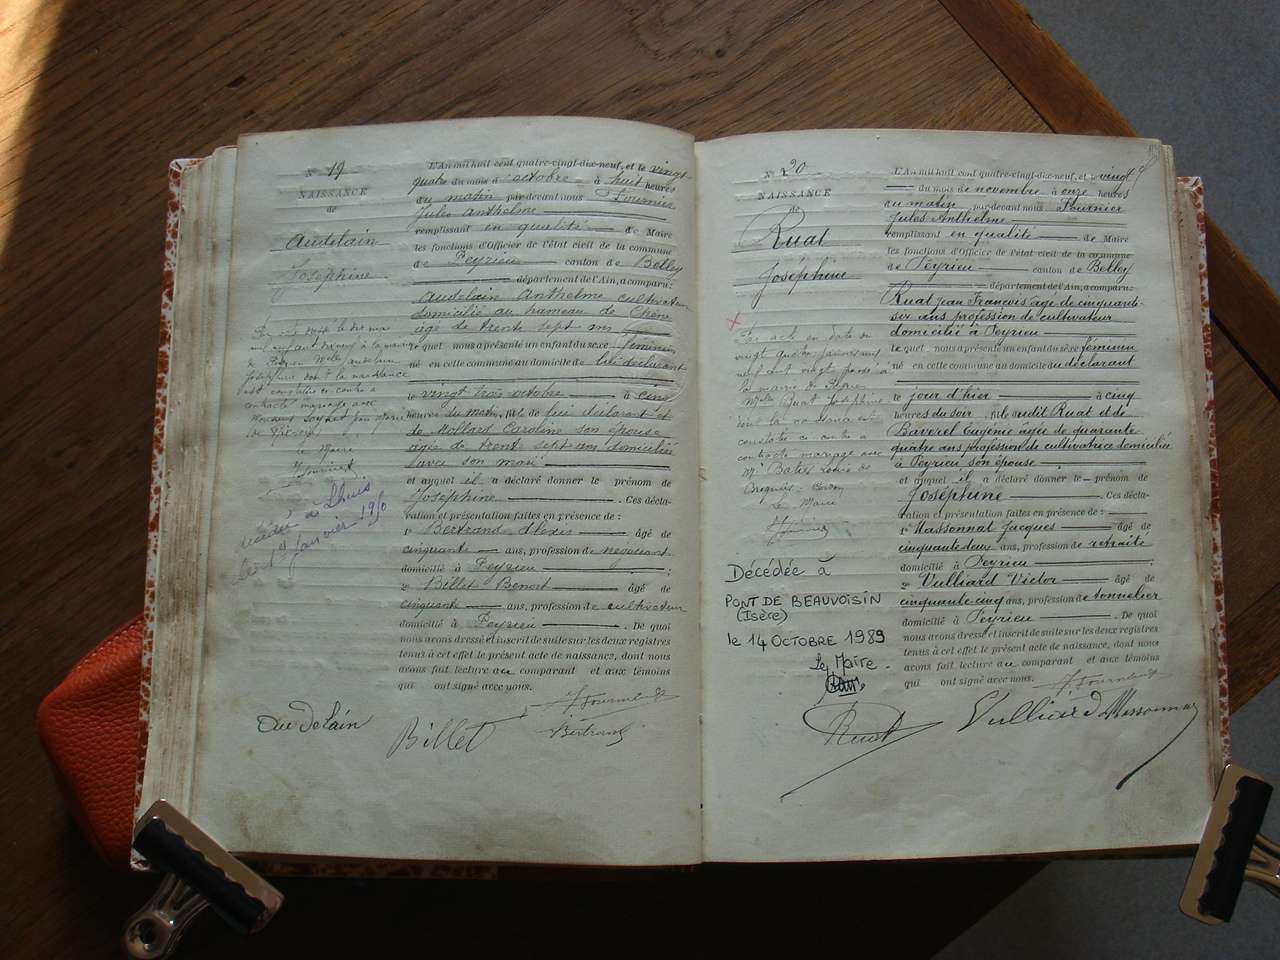 N° 19
NAISSANCE
de
Audelain
Joséphine
L'An mil huit cent quatre-vingt-dix-neuf, et le vingt
quatre du mois d'octobre à huit heures
du matin par-devant nous Fournier
Jules Anthelme
remplissant en qualité de Maire
les fonctions d'Officier de l'état civil de la commune
de Peyrieu canton de Belley
département de l'Ain, a comparu:
Audelain Anthelme cultivateur
domicilié au hameau de
âgé de trente sept ans
lequel nous a présenté un enfant du sexe féminin
né en cette commune au domicile de lui déclarant
le vingt trois octobre à cinq
heures du matin, fils de lui déclarant et
de Mollard Caroline son épouse
âgée de trente sept ans domiciliée
avec son mari
et auquel il a déclaré donner le prénom de
Joséphine . Ces décla-
ration et présentation faites en présence de :
1° Bertrand Alexis âgé de
cinquante ans, profession de négociant
domicilié à Peyrieu ;
2° Billet Benoit âgé de
cinquante ans, profession de cultivateur
domicilié à Peyrieu . De quoi
nous avons dressé et inscrit de suite sur les deux registres
tenus à cet effet le présent acte de naissance, dont nous
avons fait lecture au comparant et aux témoins
qui ont signé avec nous.
le Maire
décédée à Lhuis
le 1er janvier 19
Audelain
Billet
J. Fournier
Bertrand
N° 20
NAISSANCE
de
Ruat
Joséphine
L'An mil huit cent quatre-vingt-dix-neuf, et le vingt
du mois de novembre à onze heures
du matin par-devant nous Fournier
Jules Anthelme
remplissant en qualité de Maire
les fonctions d'Officier de l'état civil de la commune
de Peyrieu canton de Belley
département de l'Ain, a comparu:
Ruat Jean François âgé de cinquante
six ans profession de cultivateur
domicilié à Peyrieu
lequel nous a présenté un enfant du sexe féminin
né en cette commune au domicile du déclarant
le jour d'hier à cinq
heures du soir, fils dudit Ruat et de
Baverel Eugénie âgée de quarante
quatre ans profession de cultivatrice domiciliée
à Peyrieu son épouse
et auquel il a déclaré donner le prénom de
Joséphine . Ces décla-
ration et présentation faites en présence de :
1° Massonnat Jacques âgé de
cinquante deux ans, profession de retraité
domicilié à Peyrieu ;
2° Vulliard Victor âgé de
cinquante-cinq ans, profession de tonnelier
domicilié à Peyrieu . De quoi
nous avons dressé et inscrit de suite sur les deux registres
tenus à cet effet le présent acte de naissance, dont nous
avons fait lecture au comparant et aux témoins
qui ont signé avec nous.
Par acte en date du
vingt quatre janvier mil
neuf cent vingt passé à
la mairie de
Mlle Ruat Joséphine
dont la naissance est
constatée ci-contre a
contracté mariage avec
Le Maire
Décédée à
PONT DE BEAUVOISIN
(Isère)
le 14 OCTOBRE 1989
Le Maire.
Ruat
Vulliard
Massonnat
J. Fournier